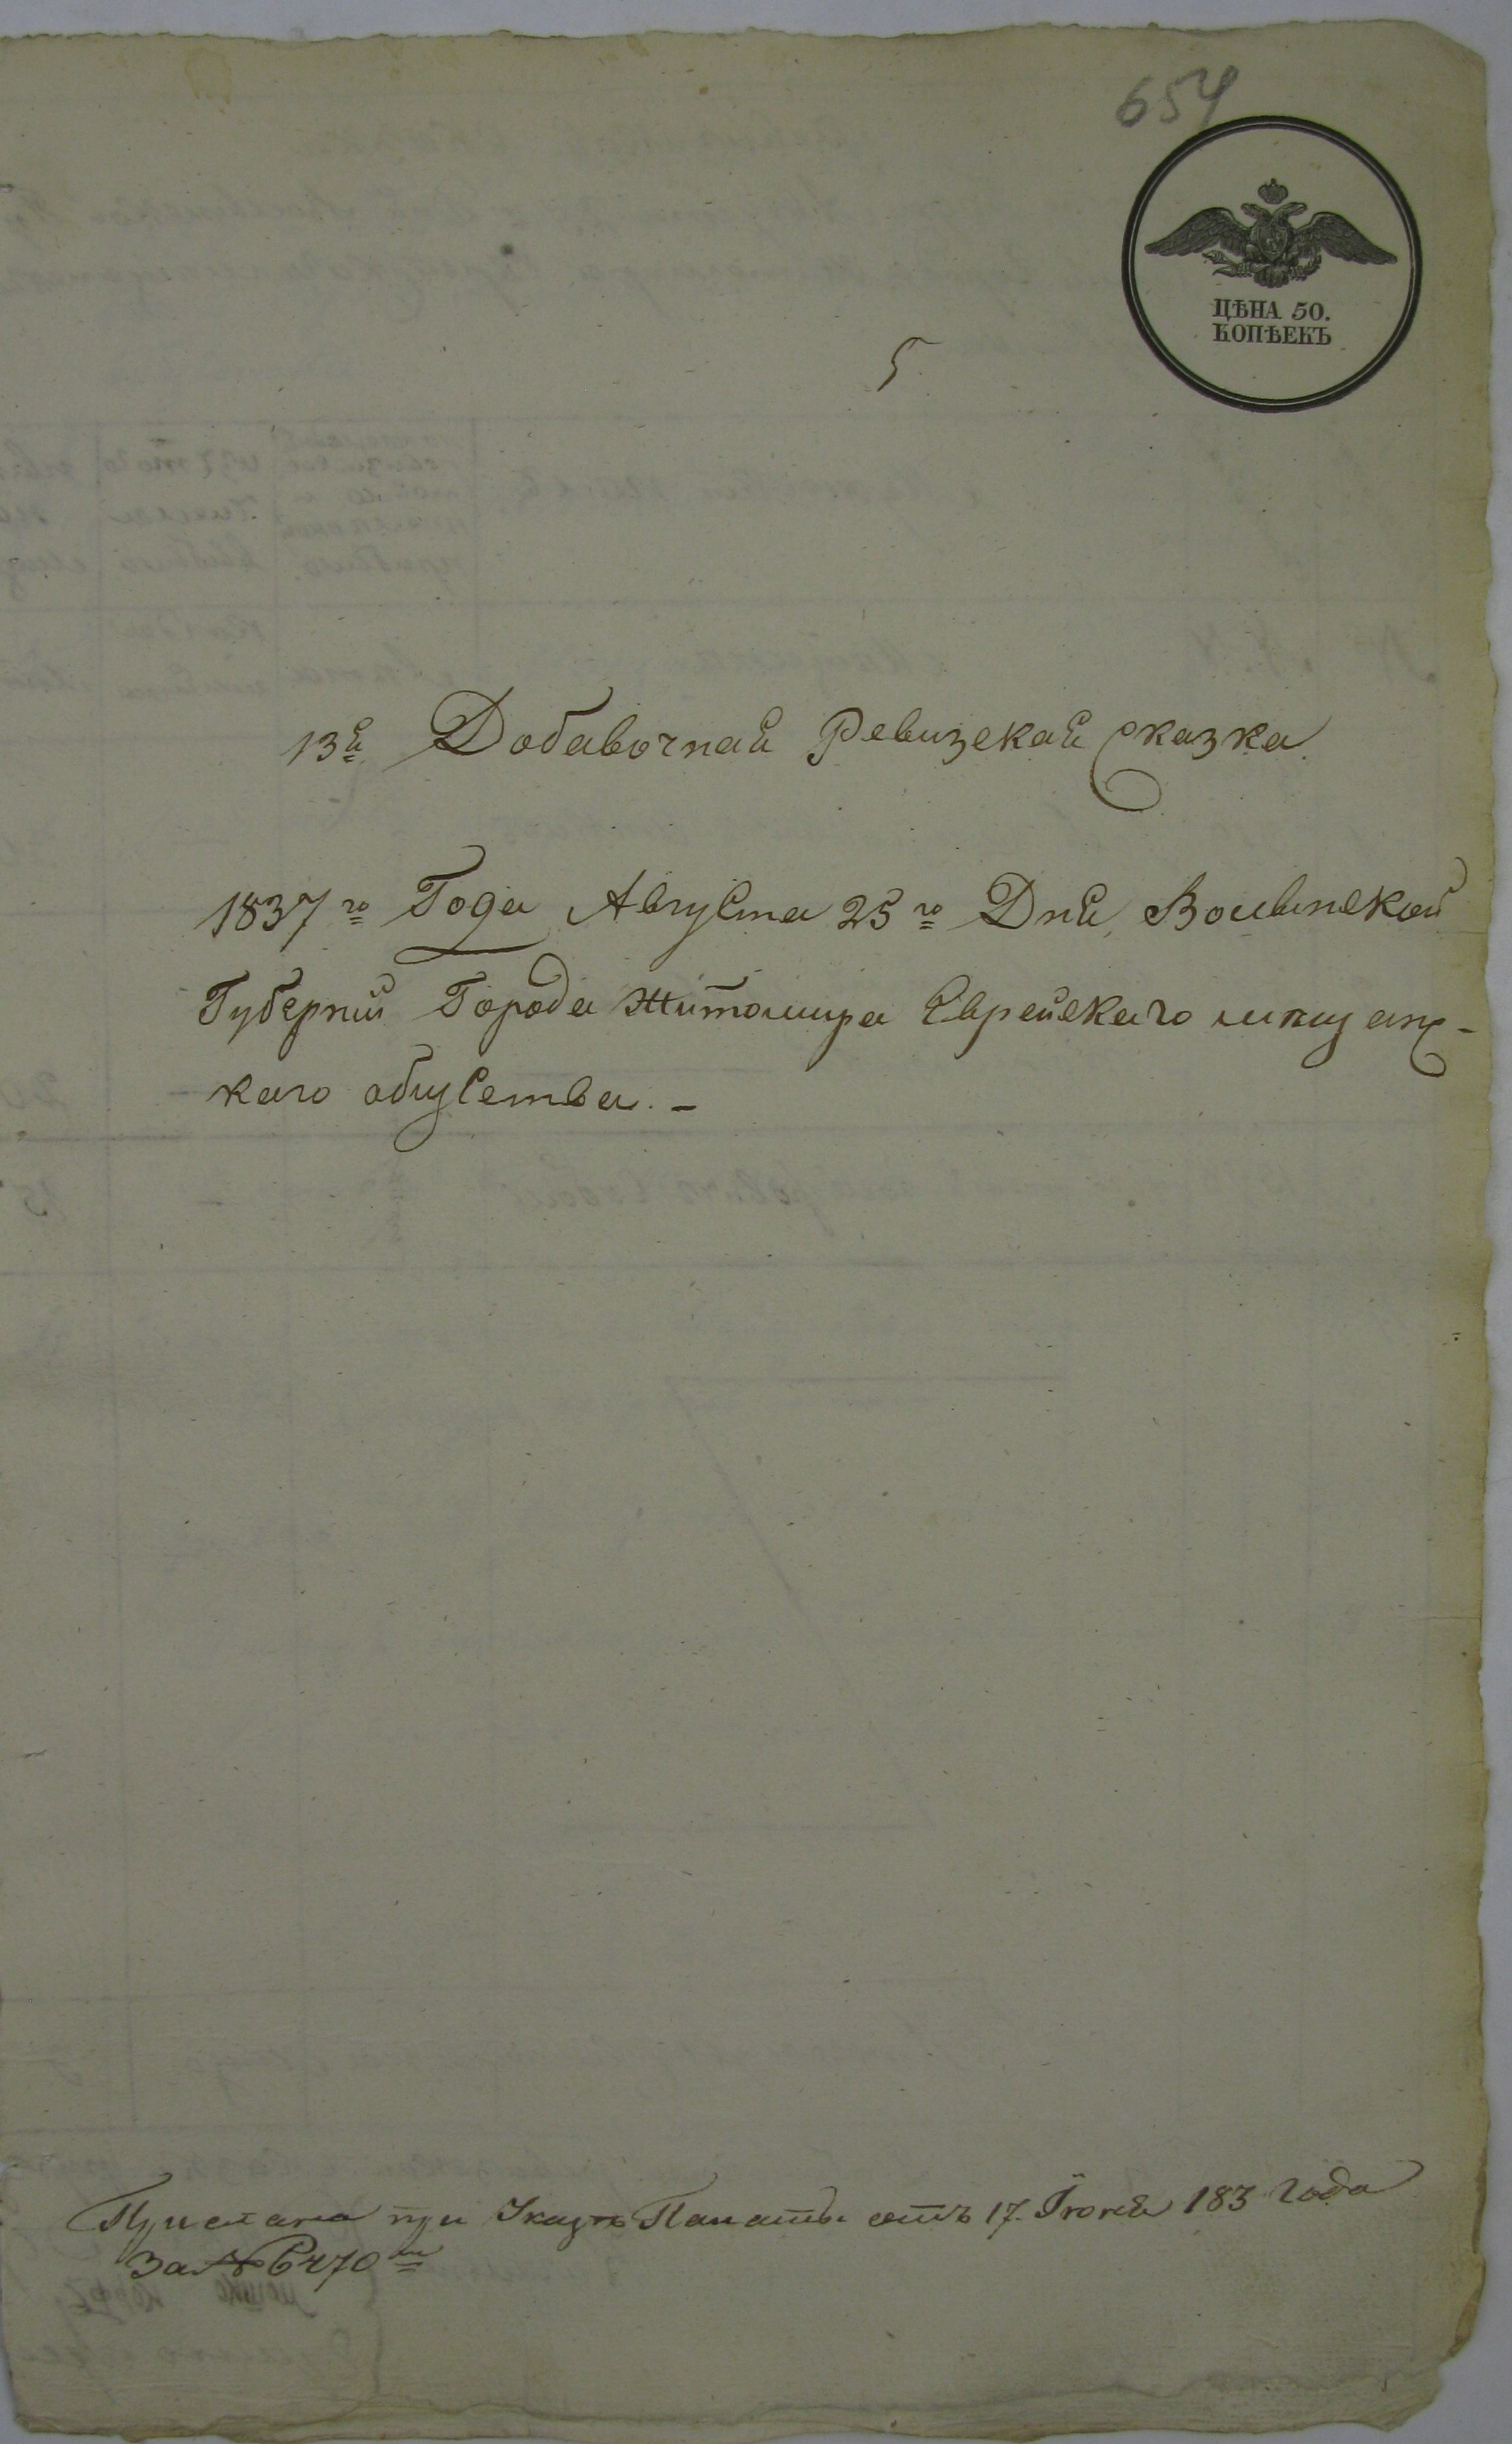 654
ЦѢНА 50.
КОПѢЕКЪ
5
13я Добавочная Ревизская Сказка
1837го Года Августа 25го Дня, Волынской
Губерніи Города Житомира Еврейскаго мещанс-
каго общества. -
Прислана при Указѣ Палаты отъ 17. Іюня 183 года
За №